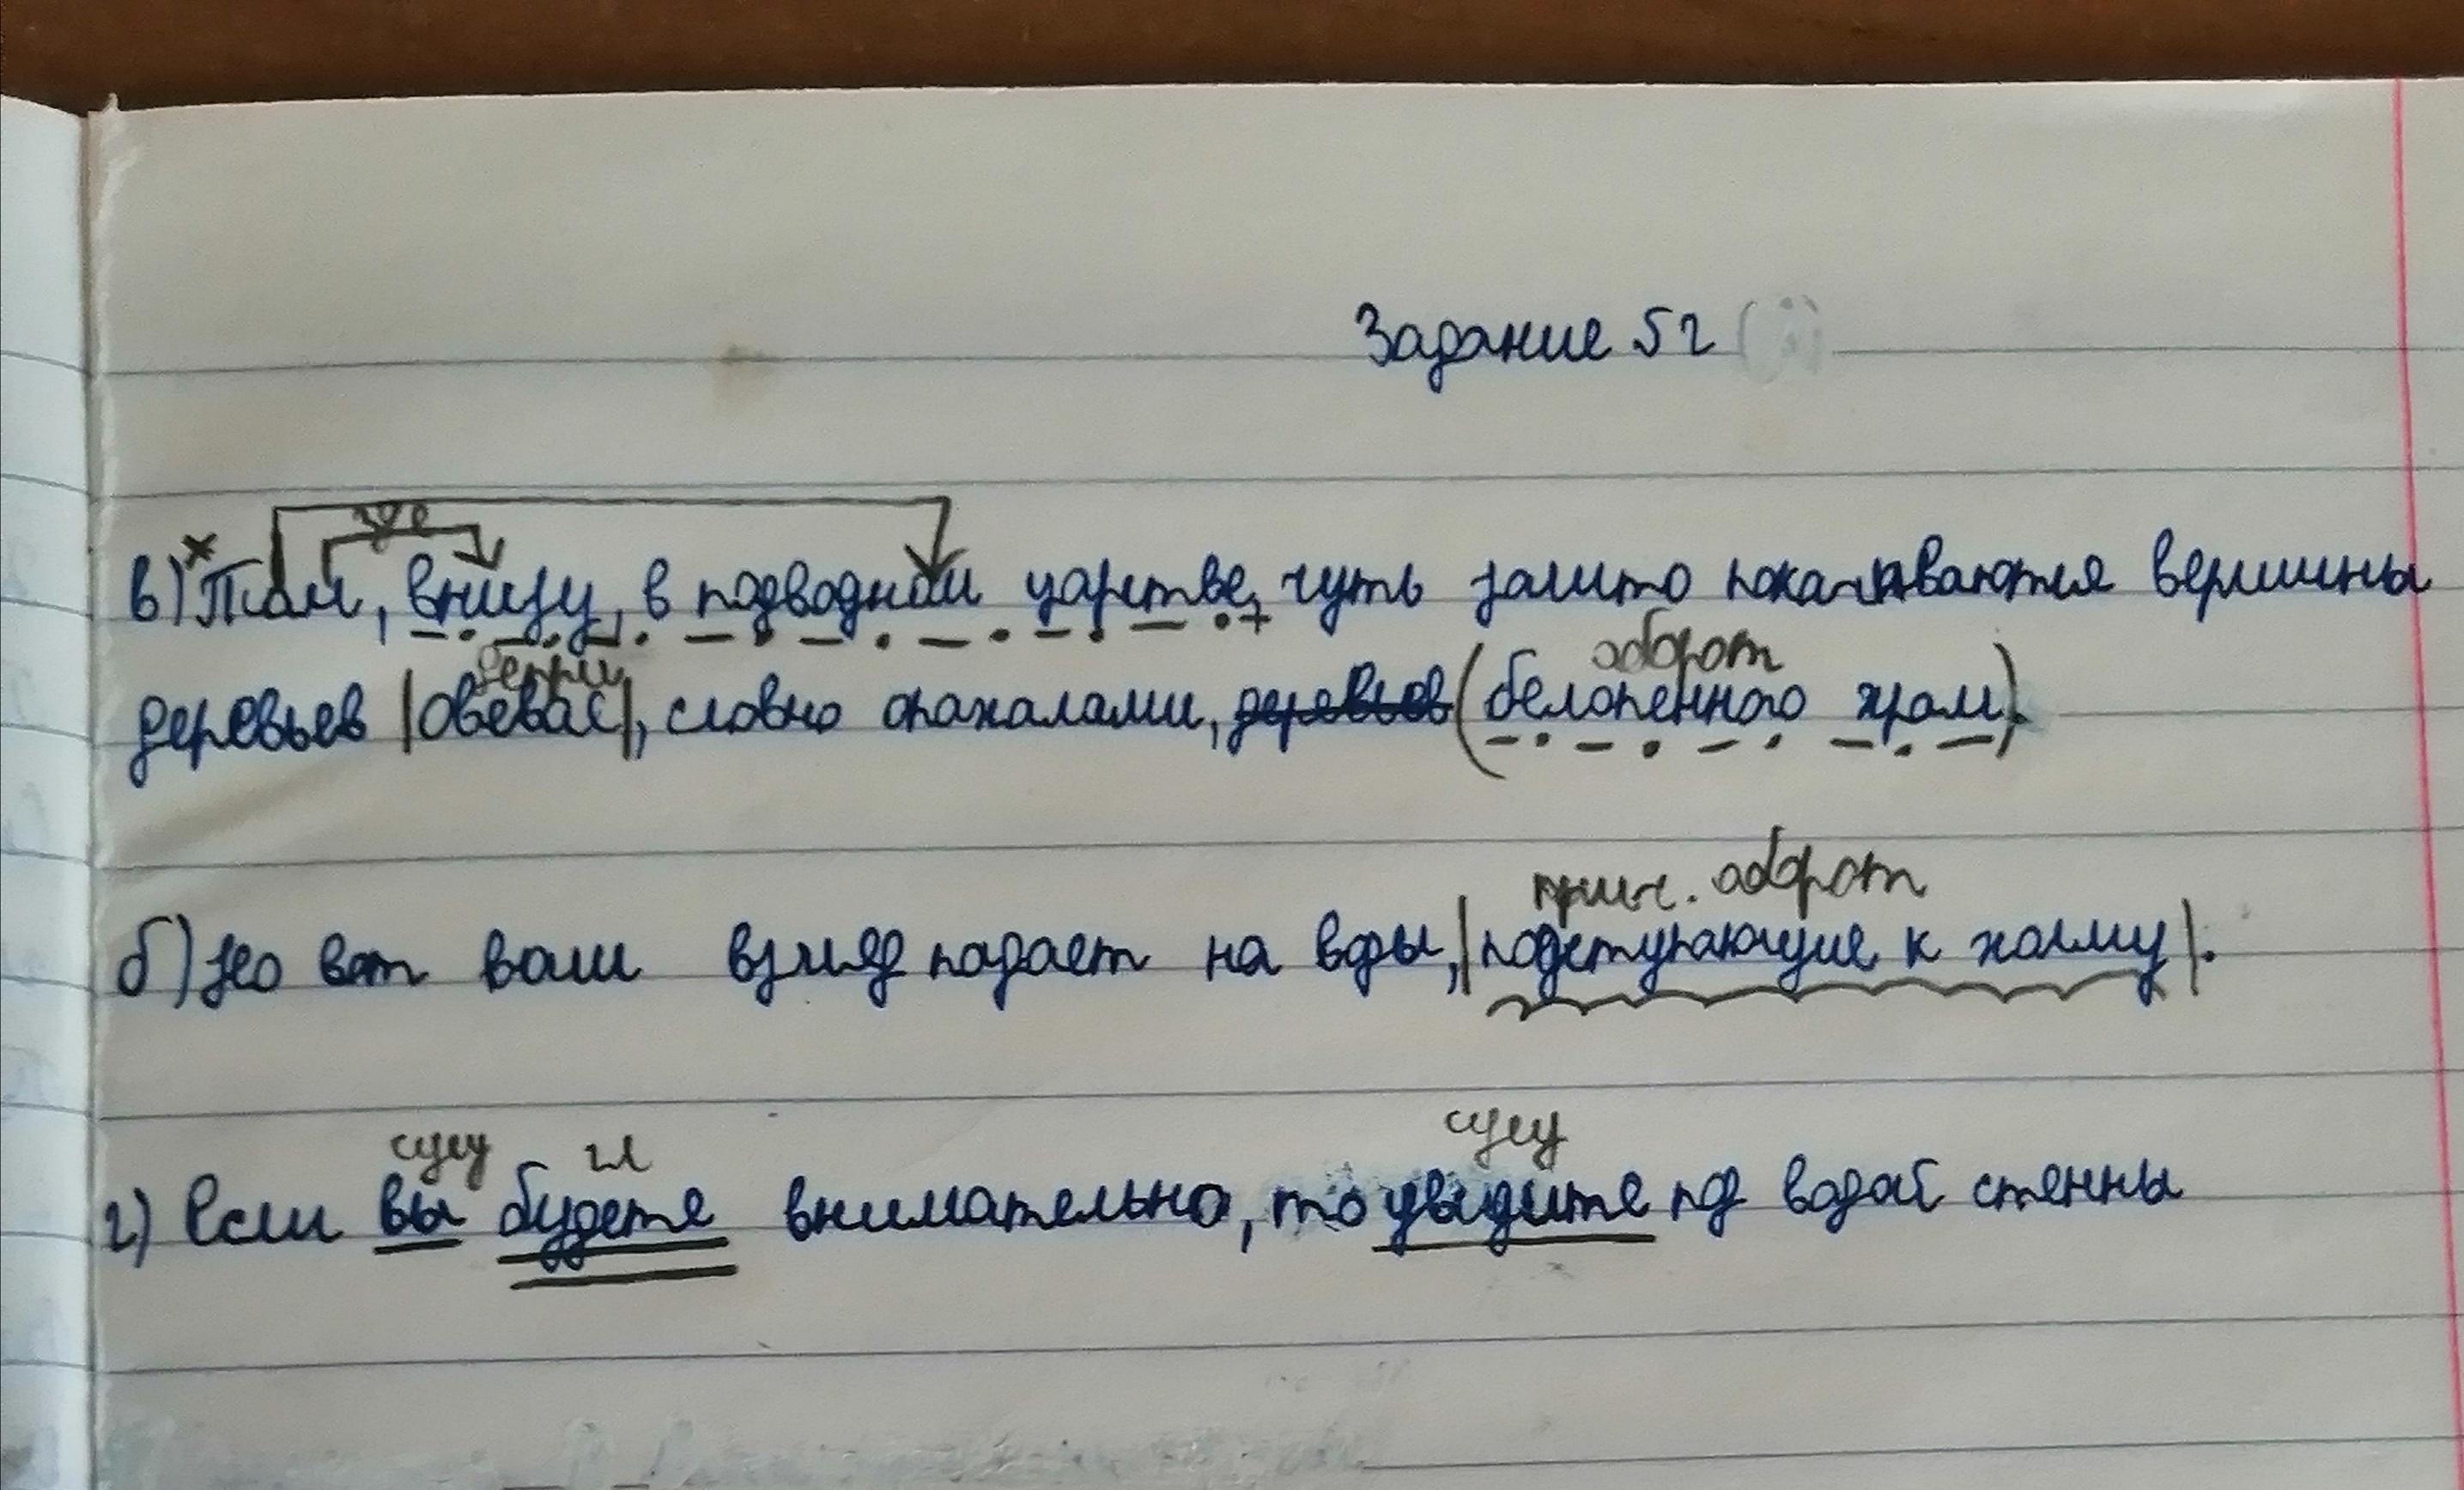 Задание 52
где
в) Там, внизу, в подводном царстве, чуть замто покачиваются вершины
оборот
деревьев |овевас|, словно опахалами, деревьев (белопенного храм).
прич. оборот
б) Но вот ваш взгляд падает на воды, |подступающие к холму|.
сущ гл сущ
г) Если вы будете внимательно, то увидите под водой стенны